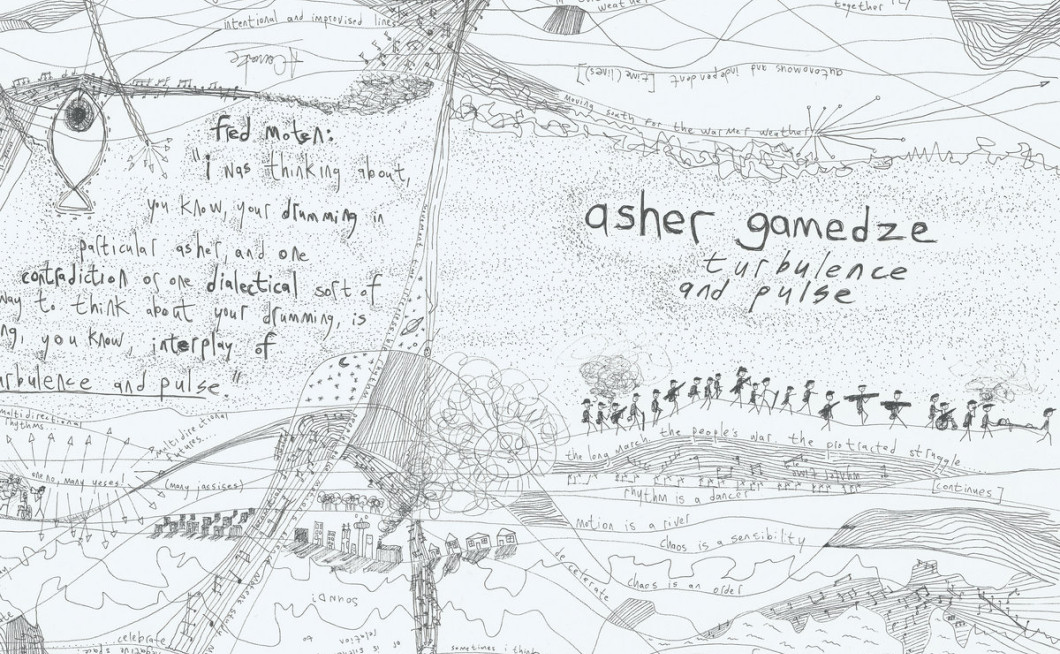 weather
together
intentional and improvised lines
autonomous and independent [time(lines)]
moving south for the warmer weather
fred moten:
"i was thinking about,
you know, your drumming in
particular asher, and one
contradiction or one dialectical sort of
way to think about your drumming, is
you know, interplay of
turbulence and pulse."
asher gamedze
turbulence
and pulse
multidirectional
rhythms...
multidirectional
futures...
one no, many yeses!
(many jassises)
the long march, the people's war, the protracted struggle....
[continues]
rhythm is a dancer
motion is a river
chaos is a sensibility
chaos is an order
decelerate
sound
celebrate
negative space
sometimes i think